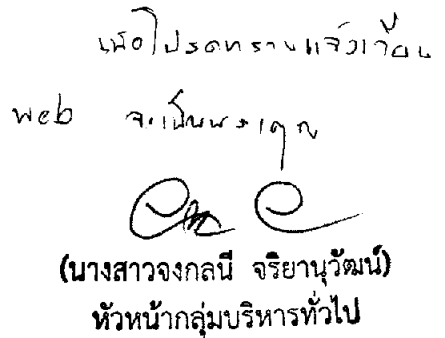 เพื่อโปรดทราบแจ้งเวียน
web จะเป็นพระคุณ
(นางสาวจงกลนี จริยานุวัฒน์)
หัวหน้ากลุ่มบริหารทั่วไป